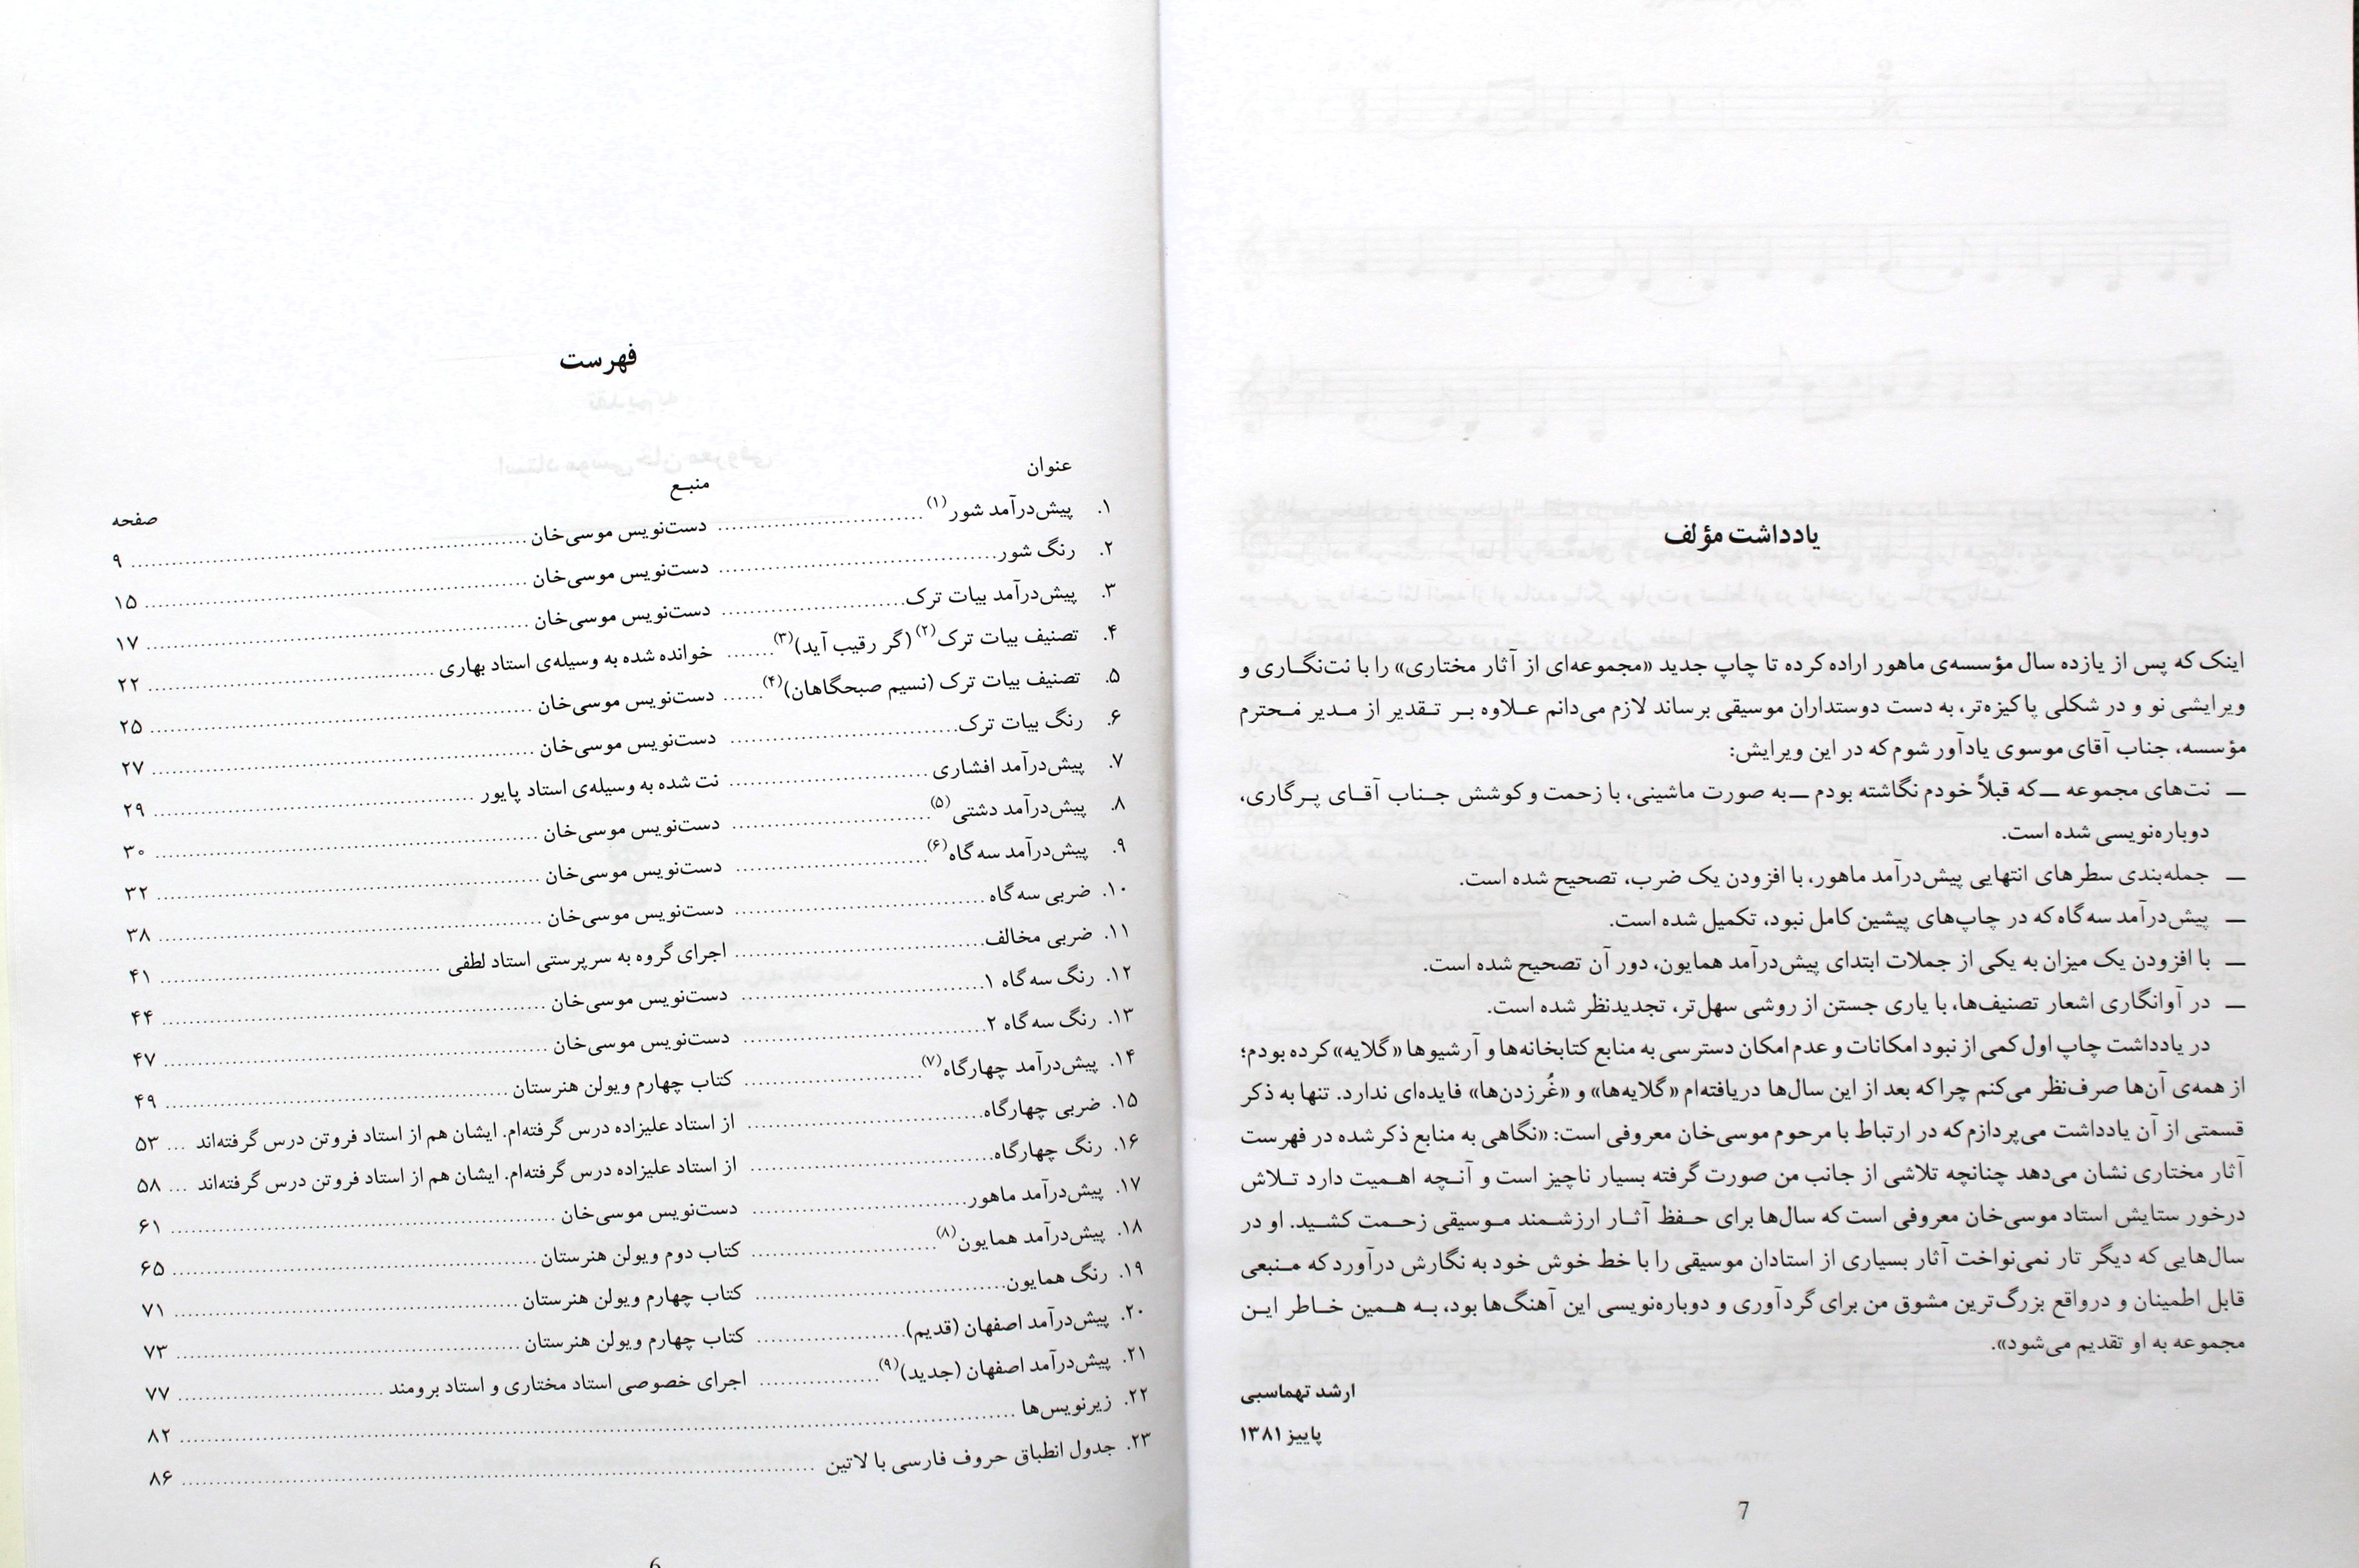 فهرست
عنوان
منبـع
صفحه
۱. پیش‌درآمد شور(۱) ........ دست‌نویس موسی‌خان ........ ۹
۲. رنگ شور ........ دست‌نویس موسی‌خان ........ ۱۵
۳. پیش‌درآمد بیات ترک ........ دست‌نویس موسی‌خان ........ ۱۷
۴. تصنیف بیات ترک(۲) (گر رقیب آید)(۳) ........ خوانده شده به وسیله‌ی استاد بهاری ........ ۲۲
۵. تصنیف بیات ترک (نسیم صبحگاهان)(۴) ........ دست‌نویس موسی‌خان ........ ۲۵
۶. رنگ بیات ترک ........ دست‌نویس موسی‌خان ........ ۲۷
۷. پیش‌درآمد افشاری ........ نت شده به وسیله‌ی استاد پایور ........ ۲۹
۸. پیش‌درآمد دشتی(۵) ........ دست‌نویس موسی‌خان ........ ۳۰
۹. پیش‌درآمد سه‌گاه(۶) ........ دست‌نویس موسی‌خان ........ ۳۲
۱۰. ضربی سه‌گاه ........ دست‌نویس موسی‌خان ........ ۳۸
۱۱. ضربی مخالف ........ اجرای گروه به سرپرستی استاد لطفی ........ ۴۱
۱۲. رنگ سه‌گاه ۱ ........ دست‌نویس موسی‌خان ........ ۴۴
۱۳. رنگ سه‌گاه ۲ ........ دست‌نویس موسی‌خان ........ ۴۷
۱۴. پیش‌درآمد چهارگاه(۷) ........ کتاب چهارم ویولن هنرستان ........ ۴۹
۱۵. ضربی چهارگاه ........ از استاد علیزاده درس گرفته‌ام. ایشان هم از استاد فروتن درس گرفته‌اند ... ۵۳
۱۶. رنگ چهارگاه ........ از استاد علیزاده درس گرفته‌ام. ایشان هم از استاد فروتن درس گرفته‌اند ... ۵۸
۱۷. پیش‌درآمد ماهور ........ دست‌نویس موسی‌خان ........ ۶۱
۱۸. پیش‌درآمد همایون(۸) ........ کتاب دوم ویولن هنرستان ........ ۶۵
۱۹. رنگ همایون ........ کتاب چهارم ویولن هنرستان ........ ۷۱
۲۰. پیش‌درآمد اصفهان (قدیم) ........ کتاب چهارم ویولن هنرستان ........ ۷۳
۲۱. پیش‌درآمد اصفهان (جدید)(۹) ........ اجرای خصوصی استاد مختاری و استاد برومند ........ ۷۷
۲۲. زیرنویس‌ها ........ ۸۲
۲۳. جدول انطباق حروف فارسی با لاتین ........ ۸۶
6
یادداشت مؤلف
اینک که پس از یازده سال مؤسسه‌ی ماهور اراده کرده تا چاپ جدید «مجموعه‌ای از آثار مختاری» را با نت‌نگـاری و
ویرایشی نو و در شکلی پاکیزه‌تر، به دست دوستداران موسیقی برساند لازم می‌دانم عـلاوه بـر تـقدیر از مـدیر مـحترم
مؤسسه، جناب آقای موسوی یادآور شوم که در این ویرایش:
— نت‌های مجموعه —که قبلاً خودم نگاشته بودم —به صورت ماشینی، با زحمت و کوشش جـناب آقـای پـرگاری،
دوباره‌نویسی شده است.
— جمله‌بندی سطرهای انتهایی پیش‌درآمد ماهور، با افزودن یک ضرب، تصحیح شده است.
— پیش‌درآمد سه‌گاه که در چاپ‌های پیشین کامل نبود، تکمیل شده است.
— با افزودن یک میزان به یکی از جملات ابتدای پیش‌درآمد همایون، دور آن تصحیح شده است.
— در آوانگاری اشعار تصنیف‌ها، با یاری جستن از روشی سهل‌تر، تجدیدنظر شده است.
در یادداشت چاپ اول کمی از نبود امکانات و عدم امکان دسترسی به منابع کتابخانه‌ها و آرشیوها «گلایه» کرده بودم؛
از همه‌ی آن‌ها صرف‌نظر می‌کنم چراکه بعد از این سال‌ها دریافته‌ام «گلایه‌ها» و «غُرزدن‌ها» فایده‌ای ندارد. تنها به ذکر
قسمتی از آن یادداشت می‌پردازم که در ارتباط با مرحوم موسی‌خان معروفی است: «نگاهی به منابع ذکر شده در فهرست
آثار مختاری نشان می‌دهد چنانچه تلاشی از جانب من صورت گرفته بسیار ناچیز است و آنـچه اهـمیت دارد تـلاش
درخور ستایش استاد موسی‌خان معروفی است که سال‌ها برای حـفظ آثـار ارزشـمند مـوسیقی زحـمت کشـید. او در
سال‌هایی که دیگر تار نمی‌نواخت آثار بسیاری از استادان موسیقی را با خط خوش خود به نگارش درآورد که مـنبعی
قابل اطمینان و درواقع بزرگ‌ترین مشوق من برای گردآوری و دوباره‌نویسی این آهنگ‌ها بود، بـه هـمین خـاطر ایـن
مجموعه به او تقدیم می‌شود».
ارشد تهماسبی
پاییز ۱۳۸۱
7